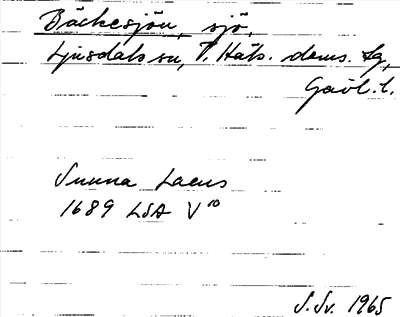 Bäckesjön, sjö,
Ljusdals sn, V. Häls. doms. tg,
Gävl. l.
Sunna Lacus
1689 LSA V 10
S. Sv. 1965